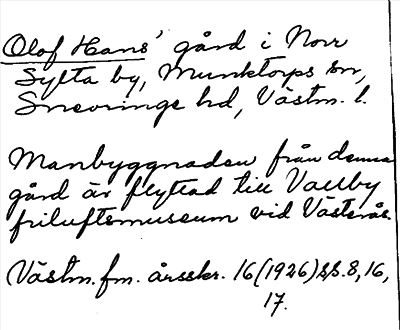 Olof Hans' gård i Norr
Sylta by, Munktorps sn,
Snevringe hd, Västm. l.
Manbyggnaden från denna
gård är flyttad till Vallby
friluftsmuseum vid Västerås.
Västm. fm. årsskr. 16 (1926) ss. 8, 16,
17.